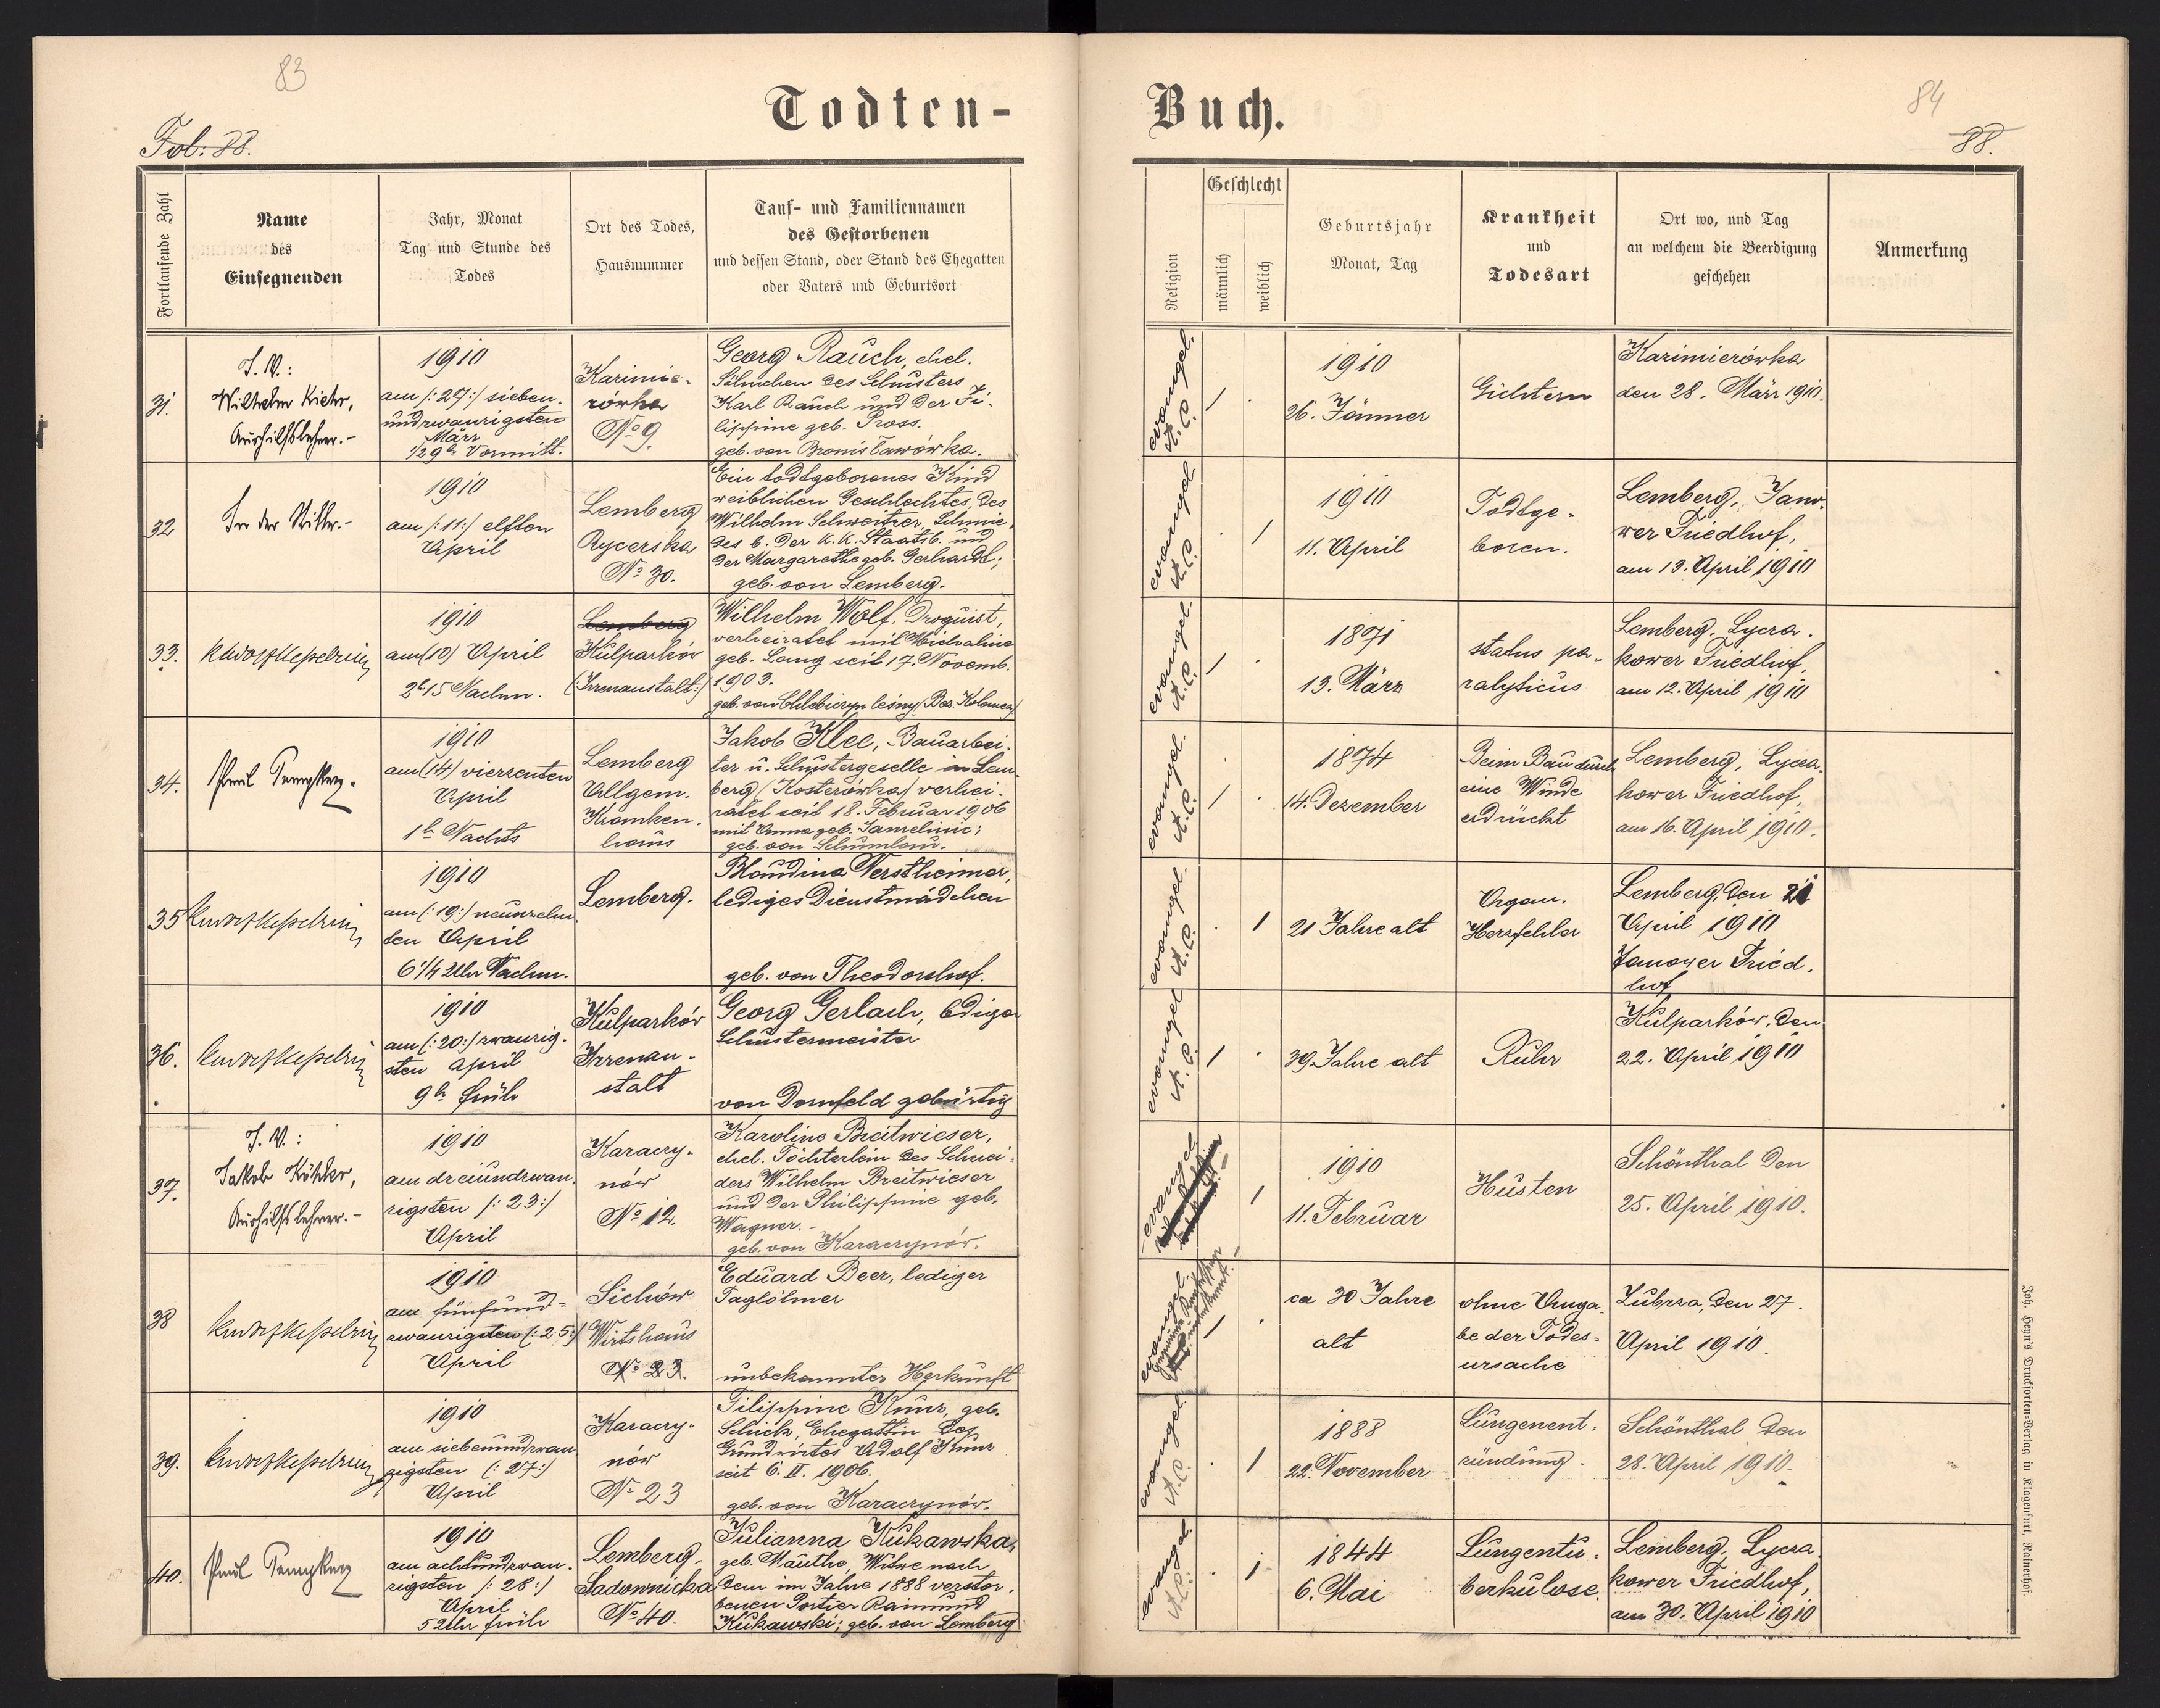 83
Todten-
Fol: 88.
Fortlaufende Zahl
Name
des
Einsegnenden
Jahr, Monat
Tag und Stunde des
Todes
Ort des Todes,
Hausnummer
Tauf- und Familiennamen
des Gestorbenen
und dessen Stand, oder Stand des Ehegatten
oder Vaters und Geburtsort
31.
I. V.:
Wilhelm Kiehr,
Aushilfslehrer.-
1910
am /:27:/ sieben-
undzwanzigsten
März
1/2 9h Vormitt.
Kazimie-
rówka
No 9.
Georg Rauch, ehel.
Söhnchen des Schusters
Karl Rauch und der Fi-
lippine geb. Pross.
geb. von Bronisławówka.
32
In der Stille.-
1910
am /:11:/ elften
April
Lemberg
Rycerska
No 30.
Ein todtgeborenes Kind
weiblichen Geschlechtes, des
Wilhelm Schweitzer, Schmie-
des b. der k. k. Staatsb. und
der Margarethe geb. Gerhardt;
geb. von Lemberg.
33.
1910
am (10) April
2h 15 Nachm.
Lemberg
Kulparków
(Irrenanstalt:)
Wilhelm Wolf, Droguist,
verheiratet mit Michaline
geb. Lang seit 17. Novemb.
1903.
geb. von Chlebiczyn leśny (Bez. Kolomea)
34.
Paul
1910
am (14) vierzenten
April
1h Nachts
Lemberg
Allgem.
Kranken-
haus
Jakob Klee, Bauarbei-
ter u. Schustergeselle in Lem-
berg (Kosterówka) verhei-
ratet seit 18. Februar 1906
mit Anna geb. Samelinic;
geb. von Schumlau.
35
1910
am (:19:) neunzehn-
ten April
6 1/4 Uhr Nachm.
Lemberg.
Blaudina Verstheimer,
lediges Dienstmädchen
geb. von Theodorshof.
36.
1910
am (:20:) zwanzig-
sten April
9h früh
Kulparków
Irrenan-
stalt
Georg Gerlach, lediger
Schustermeister
von Dornfeld gebürtig
37.
I. V.:
Jakob Köhler,
Aushilfslehrer.-
1910
am dreiundzwan-
zigsten /:23:/
April
Karaczy-
nów
No 12.
Karoline Breitwieser,
ehel. Töchterlein des Schnei-
ders Wilhelm Breitwieser
und der Philippine geb.
Wagner.-
geb. von Karaczynów.
38
1910
am fünfund-
zwanzigsten (:25:)
April
Sichów
Wirtshaus
No 23.
Eduard Beer, lediger
Taglöhner
unbekannter Herkunft
39.
1910
am siebenundzwan-
zigsten (:27:)
April
Karaczy-
nów
No 23
Filippine Kunz, geb.
Schick, Ehegattin des
Grundwirtes Adolf Kunz
seit 6. II. 1906.
geb. von Karaczynów.
40.
Paul
1910
am achtundzwan-
zigsten /:28:/
April
5 Uhr früh
Lemberg,
Sadownicka
No 40.
Julianna Kukawska,
geb. Mauthe, Witwe nach
dem im Jahre 1888 verstor-
benen Portier Raimund
Kukawski; geb. von Lemberg
84
Buch.
88.
Religion
Geschlecht
männlich
weiblich
Geburtsjahr
Monat, Tag
Krankheit
und
Todesart
Ort wo, und Tag
an welchem die Beerdigung
geschehen
Anmerkung
evangel.
A. C.
1
1910
26. Jänner
Gichtern
Kazimierówka
den 28. März 1910.
evangel
A. C.
1
1910
11. April
Todtge-
boren.
Lemberg, Janow-
wer Friedhof,
am 13. April 1910
evangel.
A. C.
1
1871
13. März
status pa-
ralyticus
Lemberg, Lycza-
kower Friedhof,
am 12. April 1910
evangel.
A. C.
1
1874
14. Dezember
Beim Bau durch
eine Winde
erdrückt
Lemberg, Lycza-
kower Friedhof,
am 16. April 1910.
evangel.
A. C.
1
21 Jahre alt
Organ.
Herzfehler
Lemberg, den 21
April 1910
Janower Fried-
hof
evangel
A. C.
1
39 Jahre alt
Ruhr
Kulparków, den
22. April 1910
evangel
1
1910
11. Februar
Husten
Schönthal den
25. April 1910.
evangel.
1
ca 30 Jahre
alt
ohne Anga-
be der Todes-
ursache
Zubrza, den 27.
April 1910.
evangel.
A. C.
1
1888
22. November
Lungenent-
zündung.
Schönthal den
28. April 1910.
evangel.
A. C.
1
1844
6. Mai
Lungentu-
berkulose.
Lemberg, Lycza-
kower Friedhof,
am 30. April 1910
Joh. Heyn's Drucksorten-Verlag in Klagenfurt, Rainerhof.